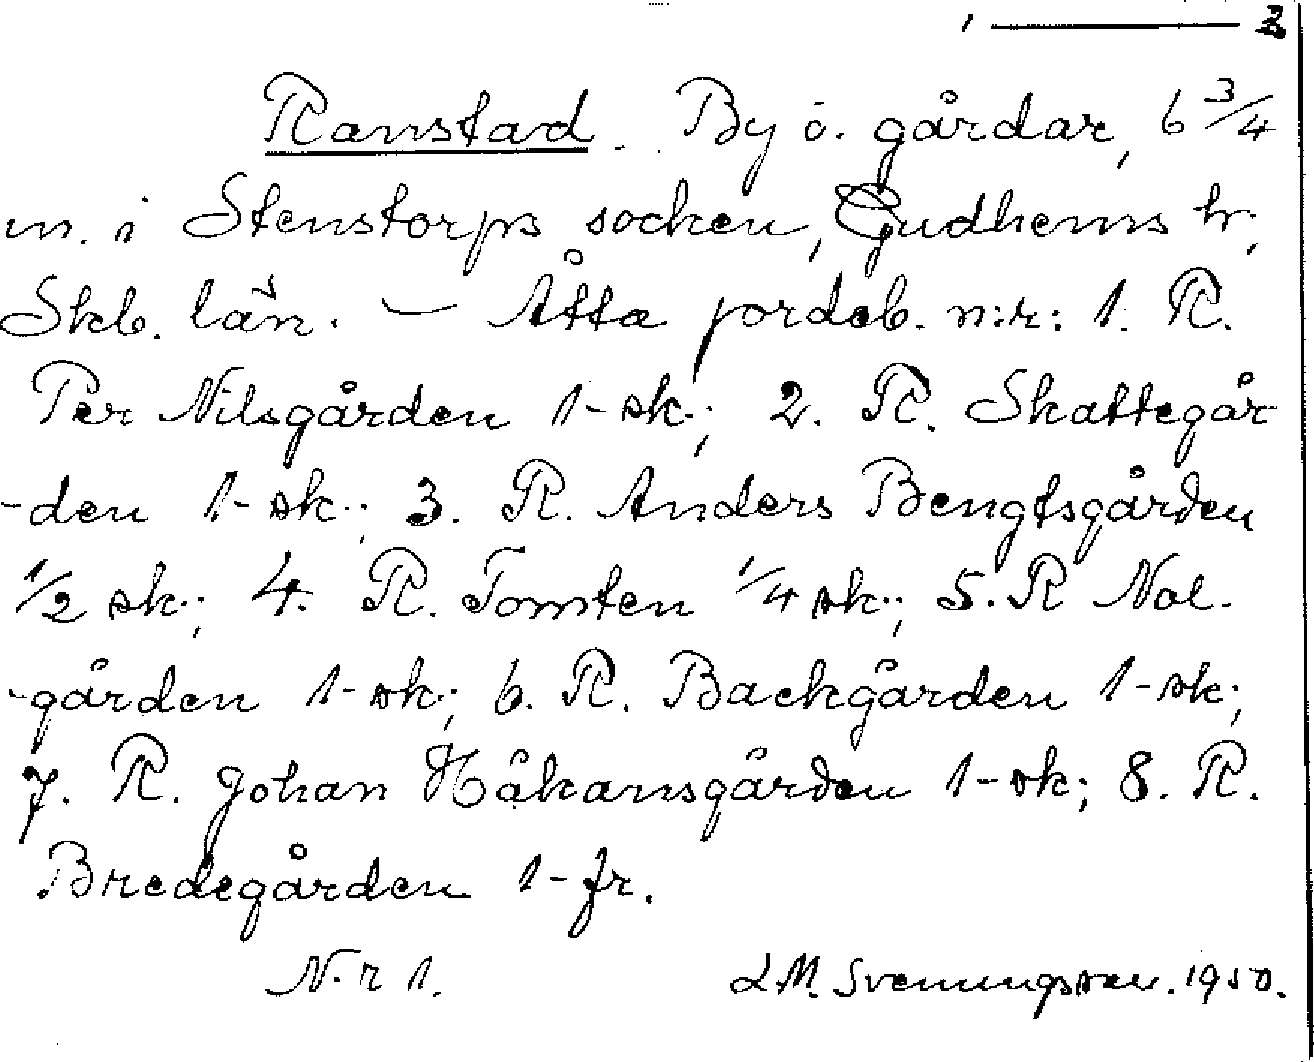 1 — 2
Ranstad. By o. gårdar, 6 3/4
m. i Stenstorps socken, Gudhems hr,
Skb. län. — Åtta jordeb. n:r: 1. R.
Per Nilsgården 1-sk.; 2. R. Skattegår
-den 1-sk.; 3. R. Anders Bengtsgården
1/2 sk.; 4. R. Tomten 1/4 sk.; 5. R Nol-
-gården 1-sk.; 6. R. Backgården 1-sk;
7. R. Johan Håkansgården 1-sk; 8. R.
Bredegården 1-fr.
N.r 1. L.M. Svenungsson. 1950.